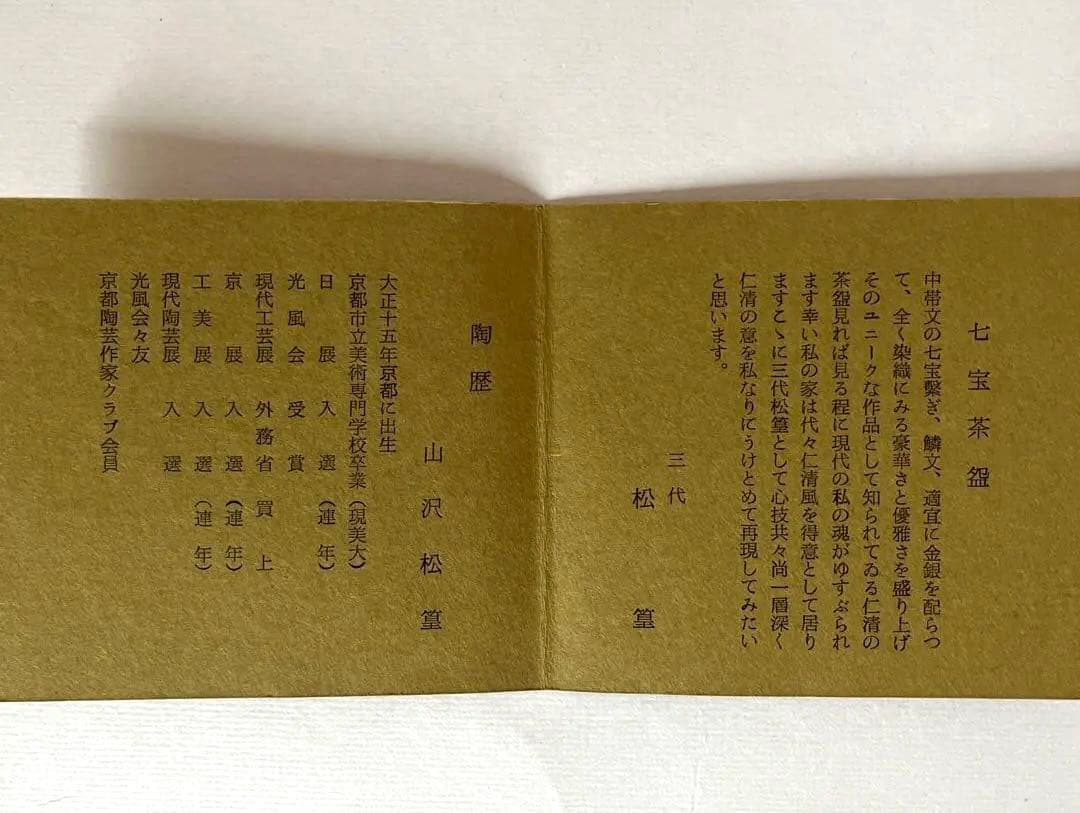 七宝茶盌
中帯文の七宝繫ぎ、鱗文、適宜に金銀を配らつ
て、全く染織にみる豪華さと優雅さを盛り上げ
そのユニークな作品として知られてゐる仁清の
茶盌見れば見る程に現代の私の魂がゆすぶられ
ます幸い私の家は代々仁清風を得意として居り
ますこゝに三代松篁として心技共々尚一層深く
仁清の意を私なりにうけとめて再現してみたい
と思います。
三代
松篁
陶歴
山沢松篁
大正十五年京都に出生
京都市立美術専門学校卒業（現美大）
日展入選（連年）
光風会受賞
現代工芸展外務省買上
京展入選（連年）
工美展入選（連年）
現代陶芸展入選
光風会々友
京都陶芸作家クラブ会員